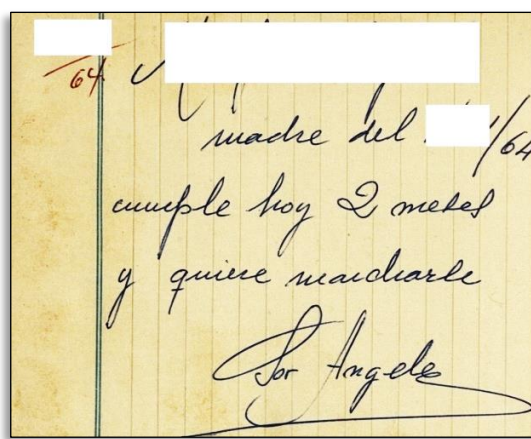 64
madre del /64
cumple hoy 2 meses
y quiere marcharse
Sor Angeles